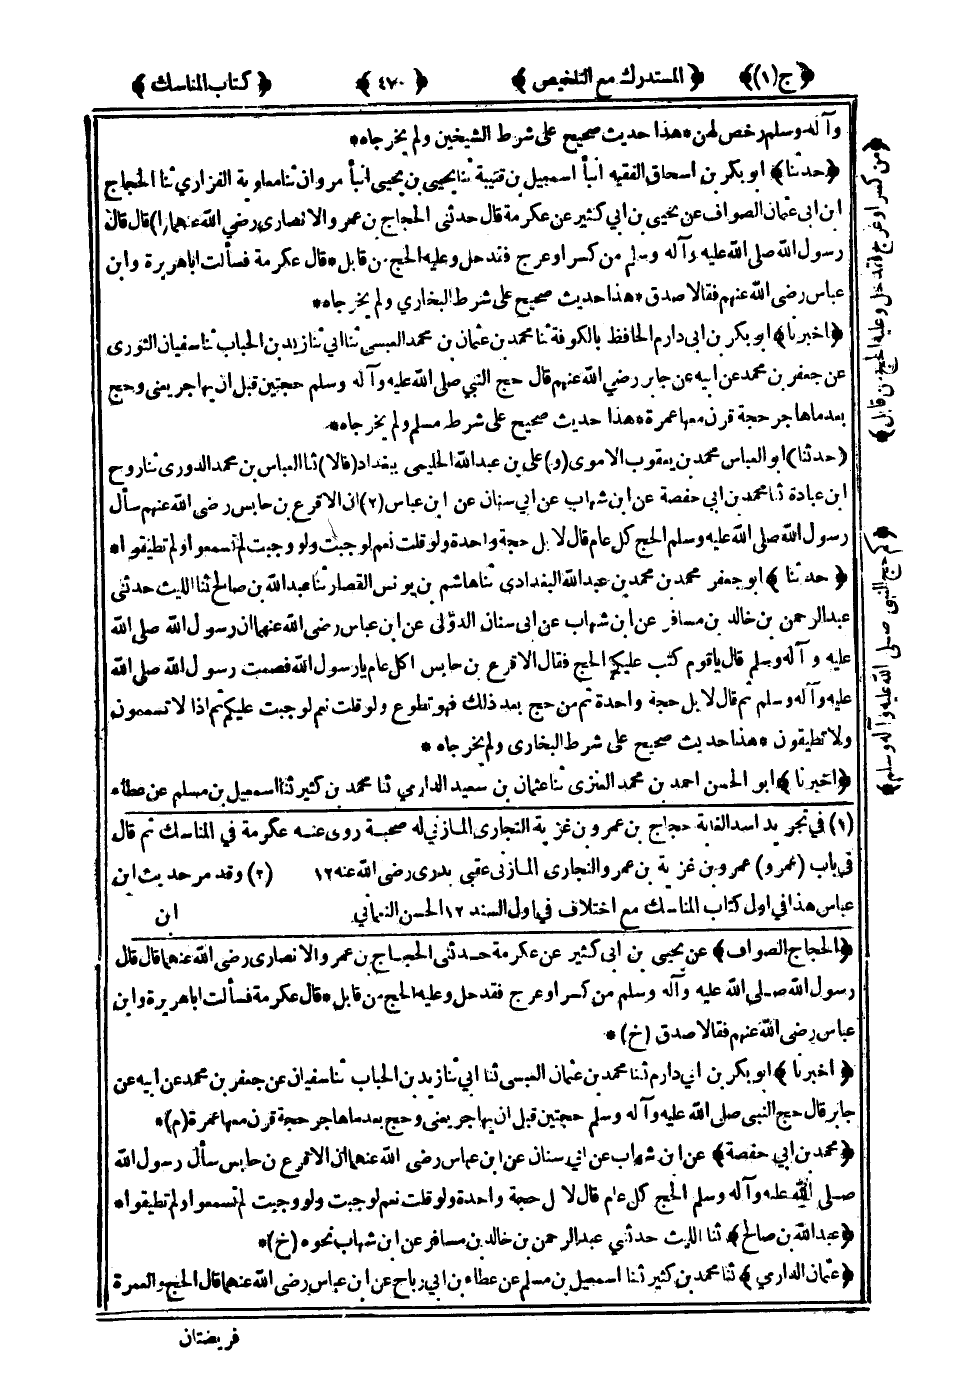 ﴿ج(١)﴾ ﴿المستدرك مع التلخيص﴾ ﴿٤٧٠﴾ ﴿كتاب المناسك﴾
وآله وسلم رخص لهن * هذا حديث صحيح على شرط الشيخين ولم يخرجاه *
﴿حدثنا﴾ ابو بكر بن اسحاق الفقيه انبأ اسمعيل بن قتيبة ثنا يحيى بن يحيى انبأ مروان ثنا معاوية الفزاري ثنا الحجاج
ابن ابى عثمان الصواف عن يحيى بن ابي كثير عن عكرمة قال حدثنى الحجاج بن عمرو الانصارى رضي الله عنهما (١) قال قال
رسول الله صلى الله عليه وآله وسلم من كسر او عرج فقد حل وعليه الحج من قابل * قال عكرمة فسألت ابا هريرة وابن
عباس رضى الله عنهم فقالا صدق * هذا حديث صحيح على شرط البخاري ولم يخرجاه *
﴿اخبرنا﴾ ابو بكر بن ابى دارم الحافظ بالكوفة ثنا محمد بن عثمان بن محمد العبسى ثنا ابي ثنا زيد بن الحباب ثنا سفيان الثورى
عن جعفر بن محمد عن ابيه عن جابر رضي الله عنهم قال حج النبي صلى الله عليه وآله وسلم حجتين قبل ان يهاجر يعنى وحج
بعد ما هاجر حجة قرن معها عمرة * هذا حديث صحيح على شرط مسلم ولم يخرجاه *
(حدثنا) ابو العباس محمد بن يعقوب الاموى (و) على بن عبد الله الحليمى ببغداد (قالا) ثنا العباس بن محمد الدورى ثنا روح
ابن عبادة ثنا محمد بن ابي حفصة عن ابن شهاب عن ابي سنان عن ابن عباس (٢) ان الاقرع بن حابس رضى الله عنهم سأل
رسول الله صلى الله عليه وسلم الحج كل عام قال لا بل حجة واحدة ولو قلت نعم لوجبت ولو وجبت لم تسمعوا ولم تطيقوا *
﴿حدثنا﴾ ابو جعفر محمد بن محمد بن عبد الله البغدادى ثنا هاشم بن يونس القصار ثنا عبد الله بن صالح ثنا الليث حدثنى
عبد الرحمن بن خالد بن مسافر عن ابن شهاب عن ابى سنان الدؤلى عن ابن عباس رضى الله عنهما ان رسول الله صلى الله
عليه وآله وسلم قال يا قوم كتب عليكم الحج فقال الاقرع بن حابس اكل عام يا رسول الله فصمت رسول الله صلى الله
عليه وآله وسلم ثم قال لا بل حجة واحدة ثم من حج بعد ذلك فهو تطوع ولو قلت نعم لوجبت عليكم ثم اذا لا تسمعون
ولا تطيقون * هذا حديث صحيح على شرط البخارى ولم يخرجاه *
﴿اخبرنا﴾ ابو الحسن احمد بن محمد العنزى ثنا عثمان بن سعيد الدارمي ثنا محمد بن كثير ثنا اسمعيل بن مسلم عن عطاء
(١) في تجريد اسد الغابة حجاج بن عمرو بن غزية النجارى المازني له صحبة روى عنه عكرمة في المناسك ثم قال
فى باب (عمرو) عمرو بن غزية بن عمرو النجارى المازنى عقبى بدرى رضى الله عنه ١٢ (٢) وقد مر حديث ابن
عباس هذا فى اول كتاب المناسك مع اختلاف في اول السند ١٢ الحسن النعمانى
ابن
﴿الحجاج الصواف﴾ عن يحيى بن ابى كثير عن عكرمة حدثنى الحجاج بن عمرو الانصارى رضى الله عنهما قال قال
رسول الله صلى الله عليه وآله وسلم من كسر او عرج فقد حل وعليه الحج من قابل * قال عكرمة فسألت ابا هريرة وابن
عباس رضى الله عنهم فقالا صدق (خ) *
﴿اخبرنا﴾ ابو بكر بن ابي دارم ثنا محمد بن عثمان العبسى ثنا ابي ثنا زيد بن الحباب ثنا سفيان عن جعفر بن محمد عن ابيه عن
جابر قال حج النبى صلى الله عليه وآله وسلم حجتين قبل ان يهاجر يعنى وحج بعد ما هاجر حجة قرن معها عمرة (م) *
﴿محمد بن ابي حفصة﴾ عن ابن شهاب عن ابي سنان عن ابن عباس رضى الله عنهما ان الاقرع بن حابس سأل رسول الله
صلى الله عليه وآله وسلم الحج كل عام قال لا بل حجة واحدة ولو قلت نعم لوجبت ولو وجبت لم تسمعوا ولم تطيقوا *
﴿عبد الله بن صالح﴾ ثنا الليث حدثني عبد الرحمن بن خالد بن مسافر عن ابن شهاب نحوه (خ) *
﴿عثمان الدارمي﴾ ثنا محمد بن كثير ثنا اسمعيل بن مسلم عن عطاء بن ابي رباح عن ابن عباس رضى الله عنهما قال الحج والعمرة
فريضتان
﴿من كسر او عرج فقد حل وعليه الحج من قابل﴾
﴿كم حج النبى صلى الله عليه وآله وسلم﴾